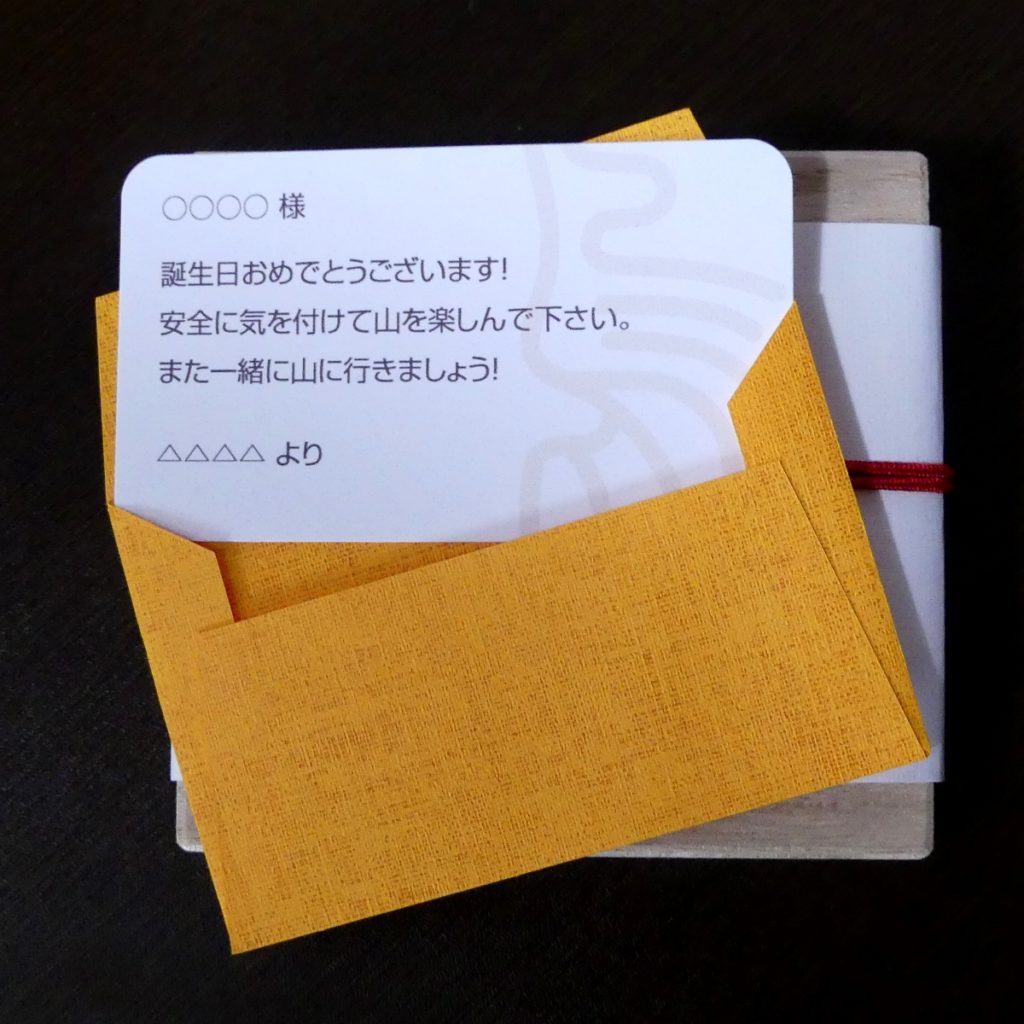 ○○○○ 様
誕生日おめでとうございます!
安全に気を付けて山を楽しんで下さい。
また一緒に山に行きましょう!
△△△△ より